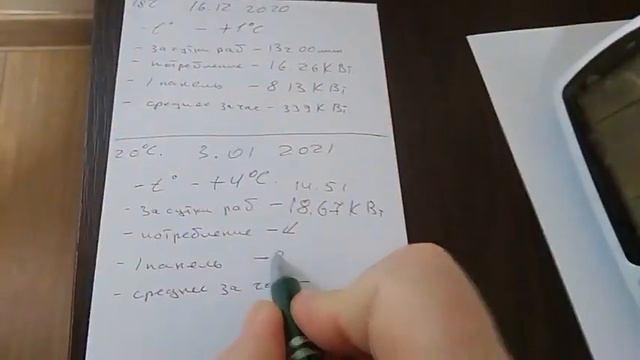 18C 16.12 2020
- t° - +1°C
- за сутки раб - 13200мин
- потребление - 16.26 КВт
- 1 панель - 8.13 КВт
- среднее за час - 339 КВт
20°C. 3.01 2021
- t° - +4°C. 14.51
- за сутки раб - 18.67 КВт
- потребление -
- 1 панель -
- среднее за час -